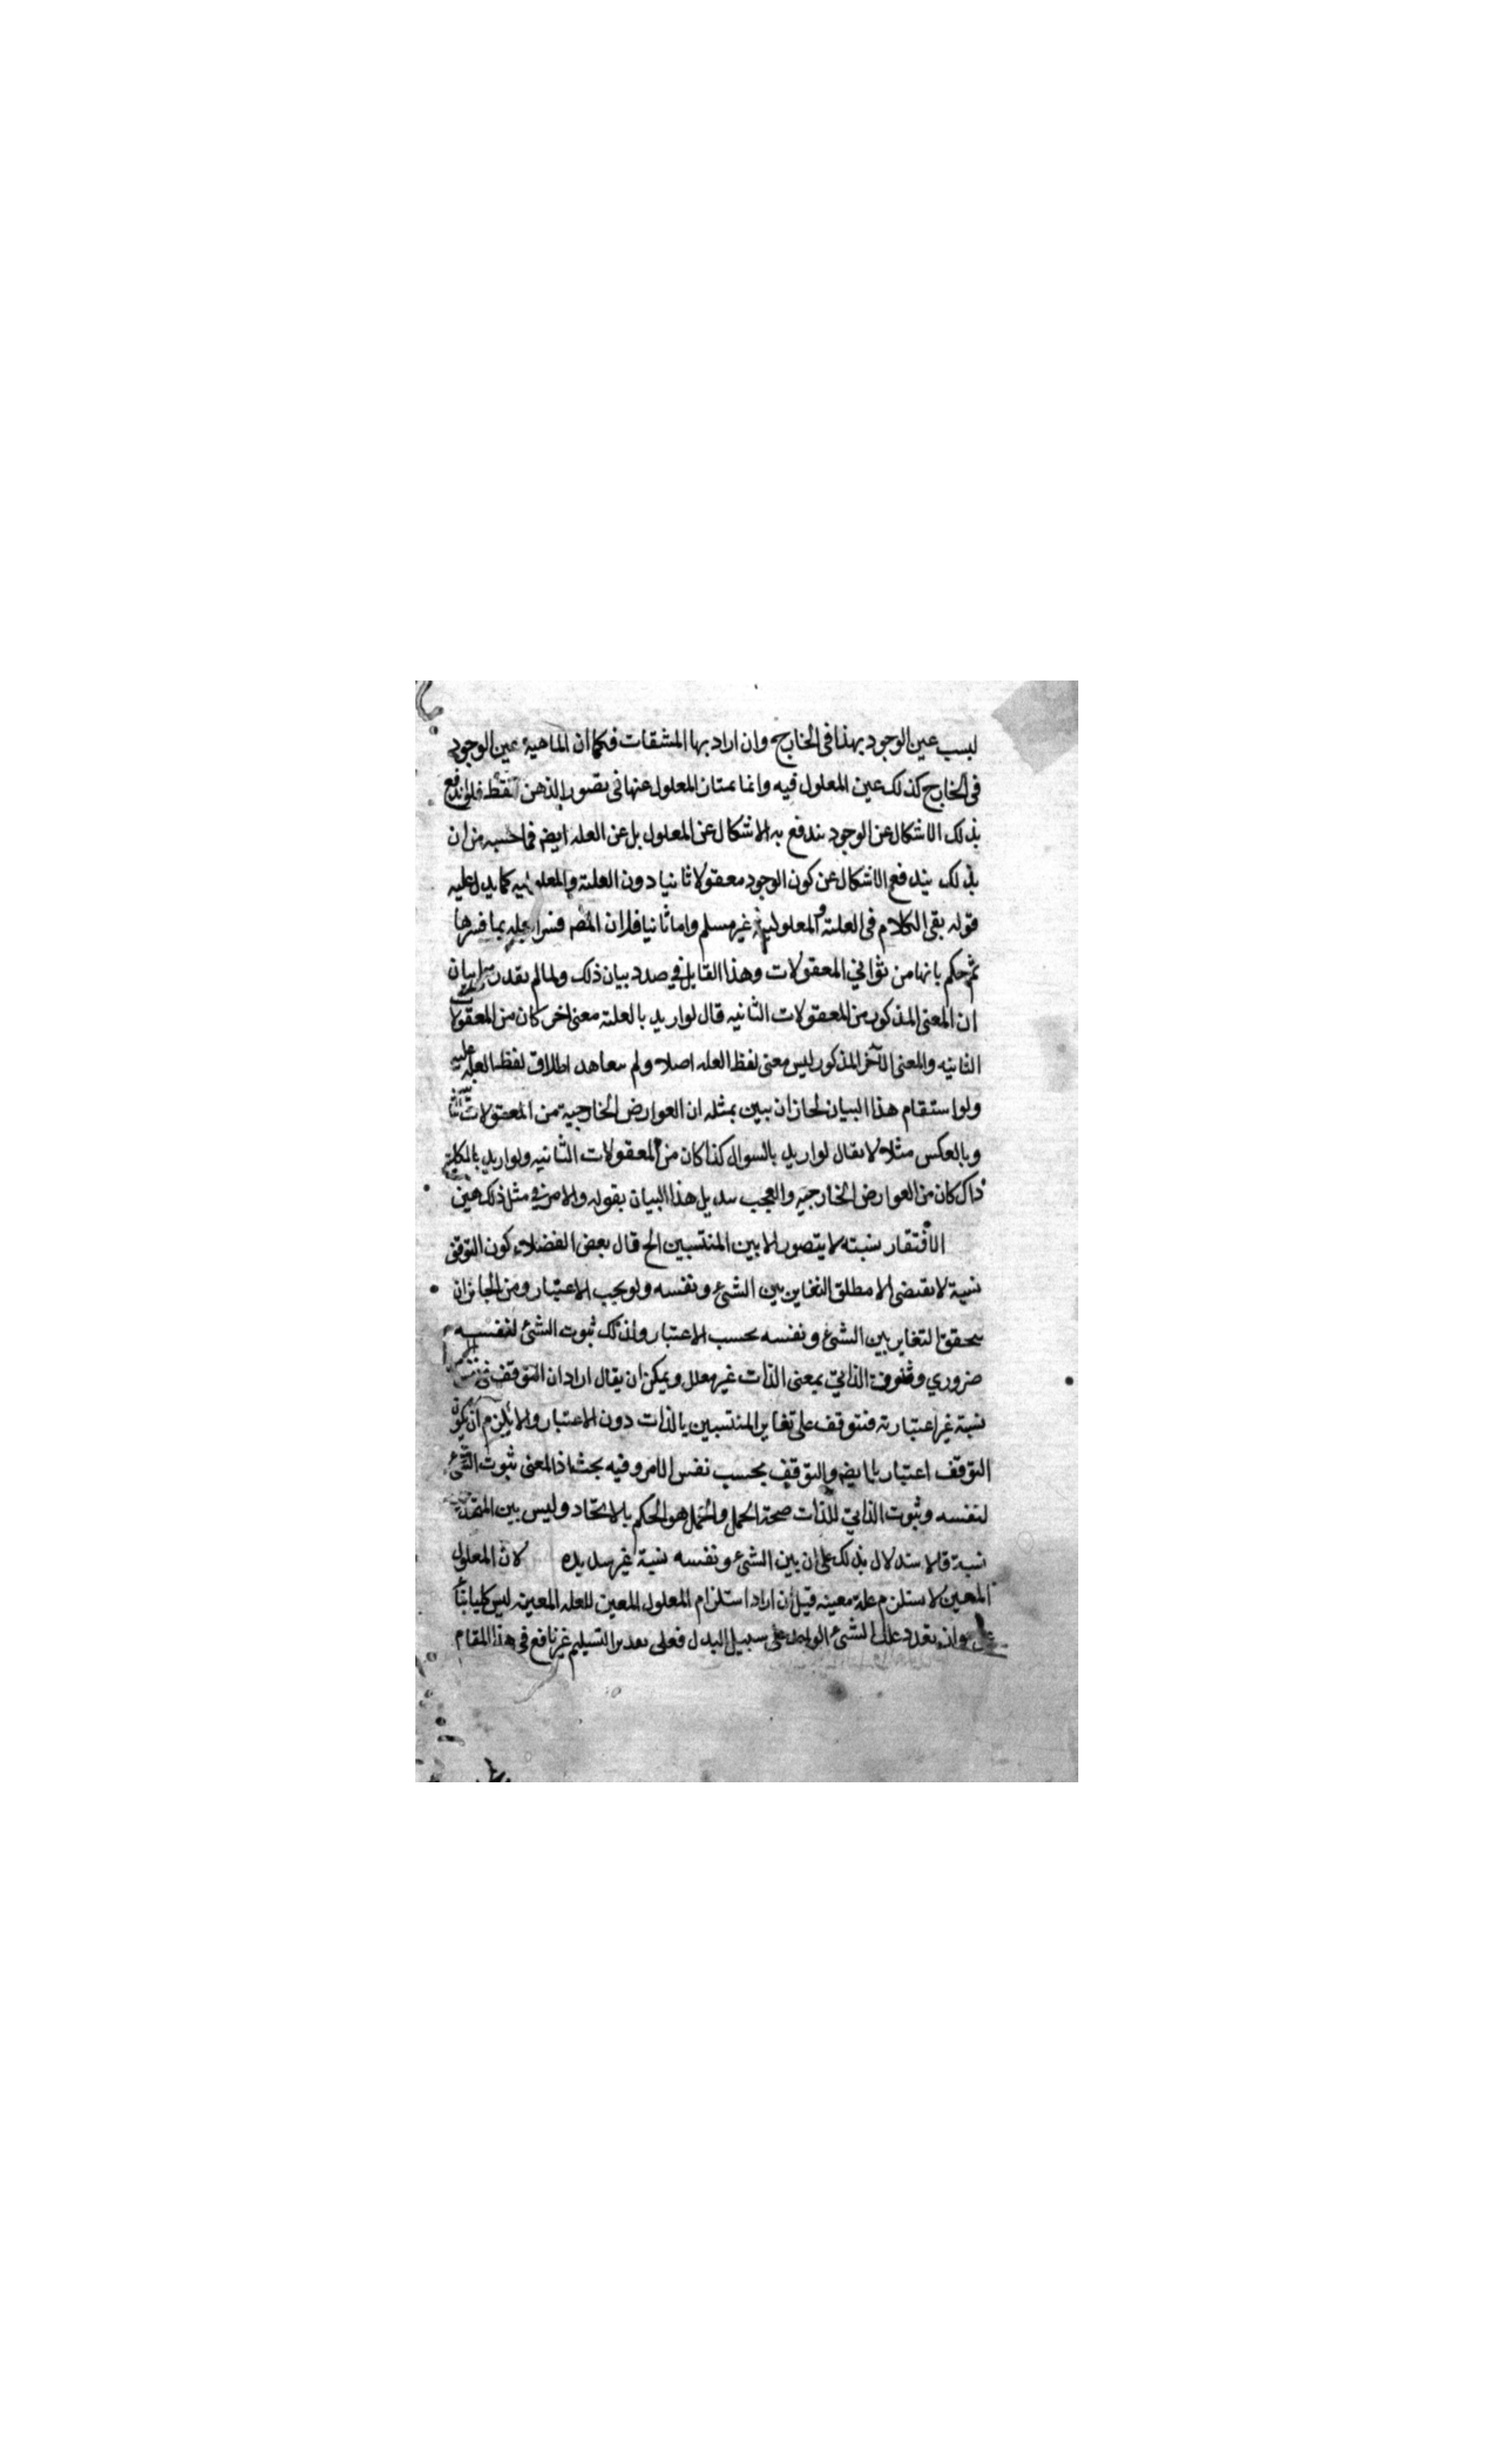 ليست عين الوجود بهذا في الخارج وان اراد بها المشتقات فكما ان الماهية عين الوجود
في الخارج كذلك عين المعلول فيه وانما يمتاز المعلول عنها في تصور الذهن فقط فلو اندفع
بذلك الاشكال عن الوجود يندفع به الاشكال عن المعلول بل عن العله ايضا فما حسبه من ان
بذلك يندفع الاشكال عن كون الوجود معقولا ثانيا دون العلية والمعلولية كما يدل عليه
قوله بقى الكلام في العلية والمعلولية غير مسلم واما ثانيا فلان المص فسر العلية بما فسرها
ثم حكم بانها من ثواني المعقولات وهذا القايل في صدد بيان ذلك ولما لم يقدر على بيان
ان المعنى المذكور من المعقولات الثانيه قال لو اريد بالعلية معنى اخر كان من المعقولات
الثانيه والمعنى الآخر المذكور ليس معنى لفظ العله اصلا ولم يتعاهد اطلاق لفظ العله عليه
ولو استقام هذا البيان لجاز ان يبين بمثله ان العوارض الخارجية من المعقولات الثانية
وبالعكس مثلا يقال لو اريد بالسواد كذا كان من المعقولات الثانيه ولو اريد بالكلية
ذاك كان من العوارض الخارجيه والعجب تذييل هذا البيان بقوله والامر في مثل ذلك هين
الافتقار نسبته لا يتصور الا بين المنتسبين الخ قال بعض الفضلاء كون التوقف
نسبة لا يقتضى الا مطلق التغاير بين الشئ ونفسه ولو بحسب الاعتبار ومن الجايز ان
يتحقق التغاير بين الشئ ونفسه بحسب الاعتبار ولذلك ثبوت الشئ لنفسه
ضروري وثبوت الذاتي بمعنى الذات غير معلل ويمكن ان يقال اراد ان التوقف في نفسه
نسبة غير اعتبارية فتتوقف على تغاير المنتسبين بالذات دون الاعتبار والا يلزم ان يكون
التوقف اعتباريا ايضا والتوقف بحسب نفس الامر وفيه بحث اذ المعنى ثبوت الشئ
لنفسه وثبوت الذاتي للذات صحة الحمل والحمل هو الحكم بالاتحاد وليس بين المتحدين
نسبة فالاستدلال بذلك على ان بين الشئ ونفسه نسبة غير سديده لان المعلول
المعين لا يستلزم علة معينه قيل ان اراد استلزام المعلول المعين للعله المعينه ليس كليا بناء
على جواز تعدد علل الشئ الواحد على سبيل البدل فعلى تقدير التسليم غير نافع في هذا المقام